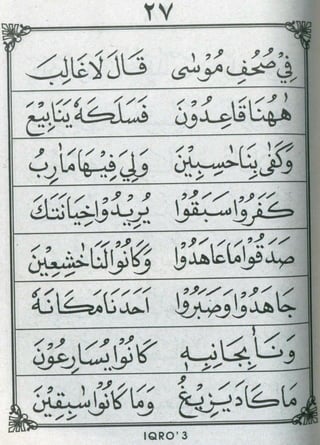 ٢٧
فِيْ صُحُفِ مُوْسٰى قَالَ لَا غَالِبَ
هٰهُنَا قَاعِدُوْنَ فَسَلَكَهٗ يَنَابِيْعَ
وَكَفٰى بِنَا حٰسِبِيْنَ وَلِيَ فِيْهَا مَاٰرِبُ
كَفَرُوْا سَبَقُوْا يُرِيْدُوْا خِيَانَتَكَ
صَدَقُوْا مَا عَاهَدُوْا وَكَانُوْا لَنَا خٰشِعِيْنَ
جَاهَدُوْا وَصَبَرُوْا اَحَدَنَا مَكَانَهٗ
وَنَاٰ بِجَانِبِهٖ كَانُوْا يُسَارِعُوْنَ
مَا كَادَ يَزِيْغُ وَمَا كَانُوْا سٰبِقِيْنَ
IQRO' 3